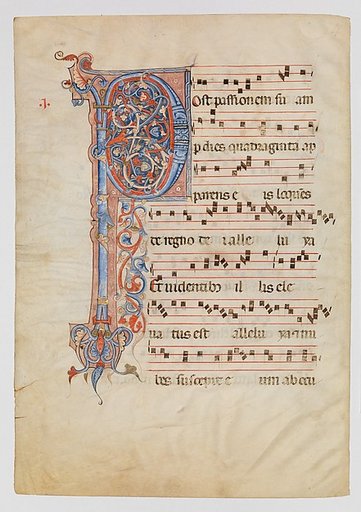 .I.
Post passionem su am
p dies quadraginta ap
parens e is loques
de regno de i alle lu ya
Et uidentibȝ il lis ele
ua tus est allelu ya
bes suscepit e um ab ocu